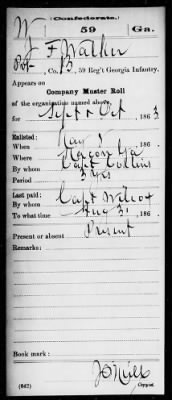 (Confederate.)
W 59 Ga.
J F Walker
Pvt, Co. B, 59 Reg't Georgia Infantry.
Appears on
Company Muster Roll
of the organization named above,
for Sept & Oct, 186 3
Enlisted:
When May 1, 186
Where Macon Ga
By whom Capt Collins
Period 3 yrs
Last paid:
By whom Capt Wilcox
To what time Aug 31, 186
Present or absent Present
Remarks:
Book mark:
(642) Copyist.